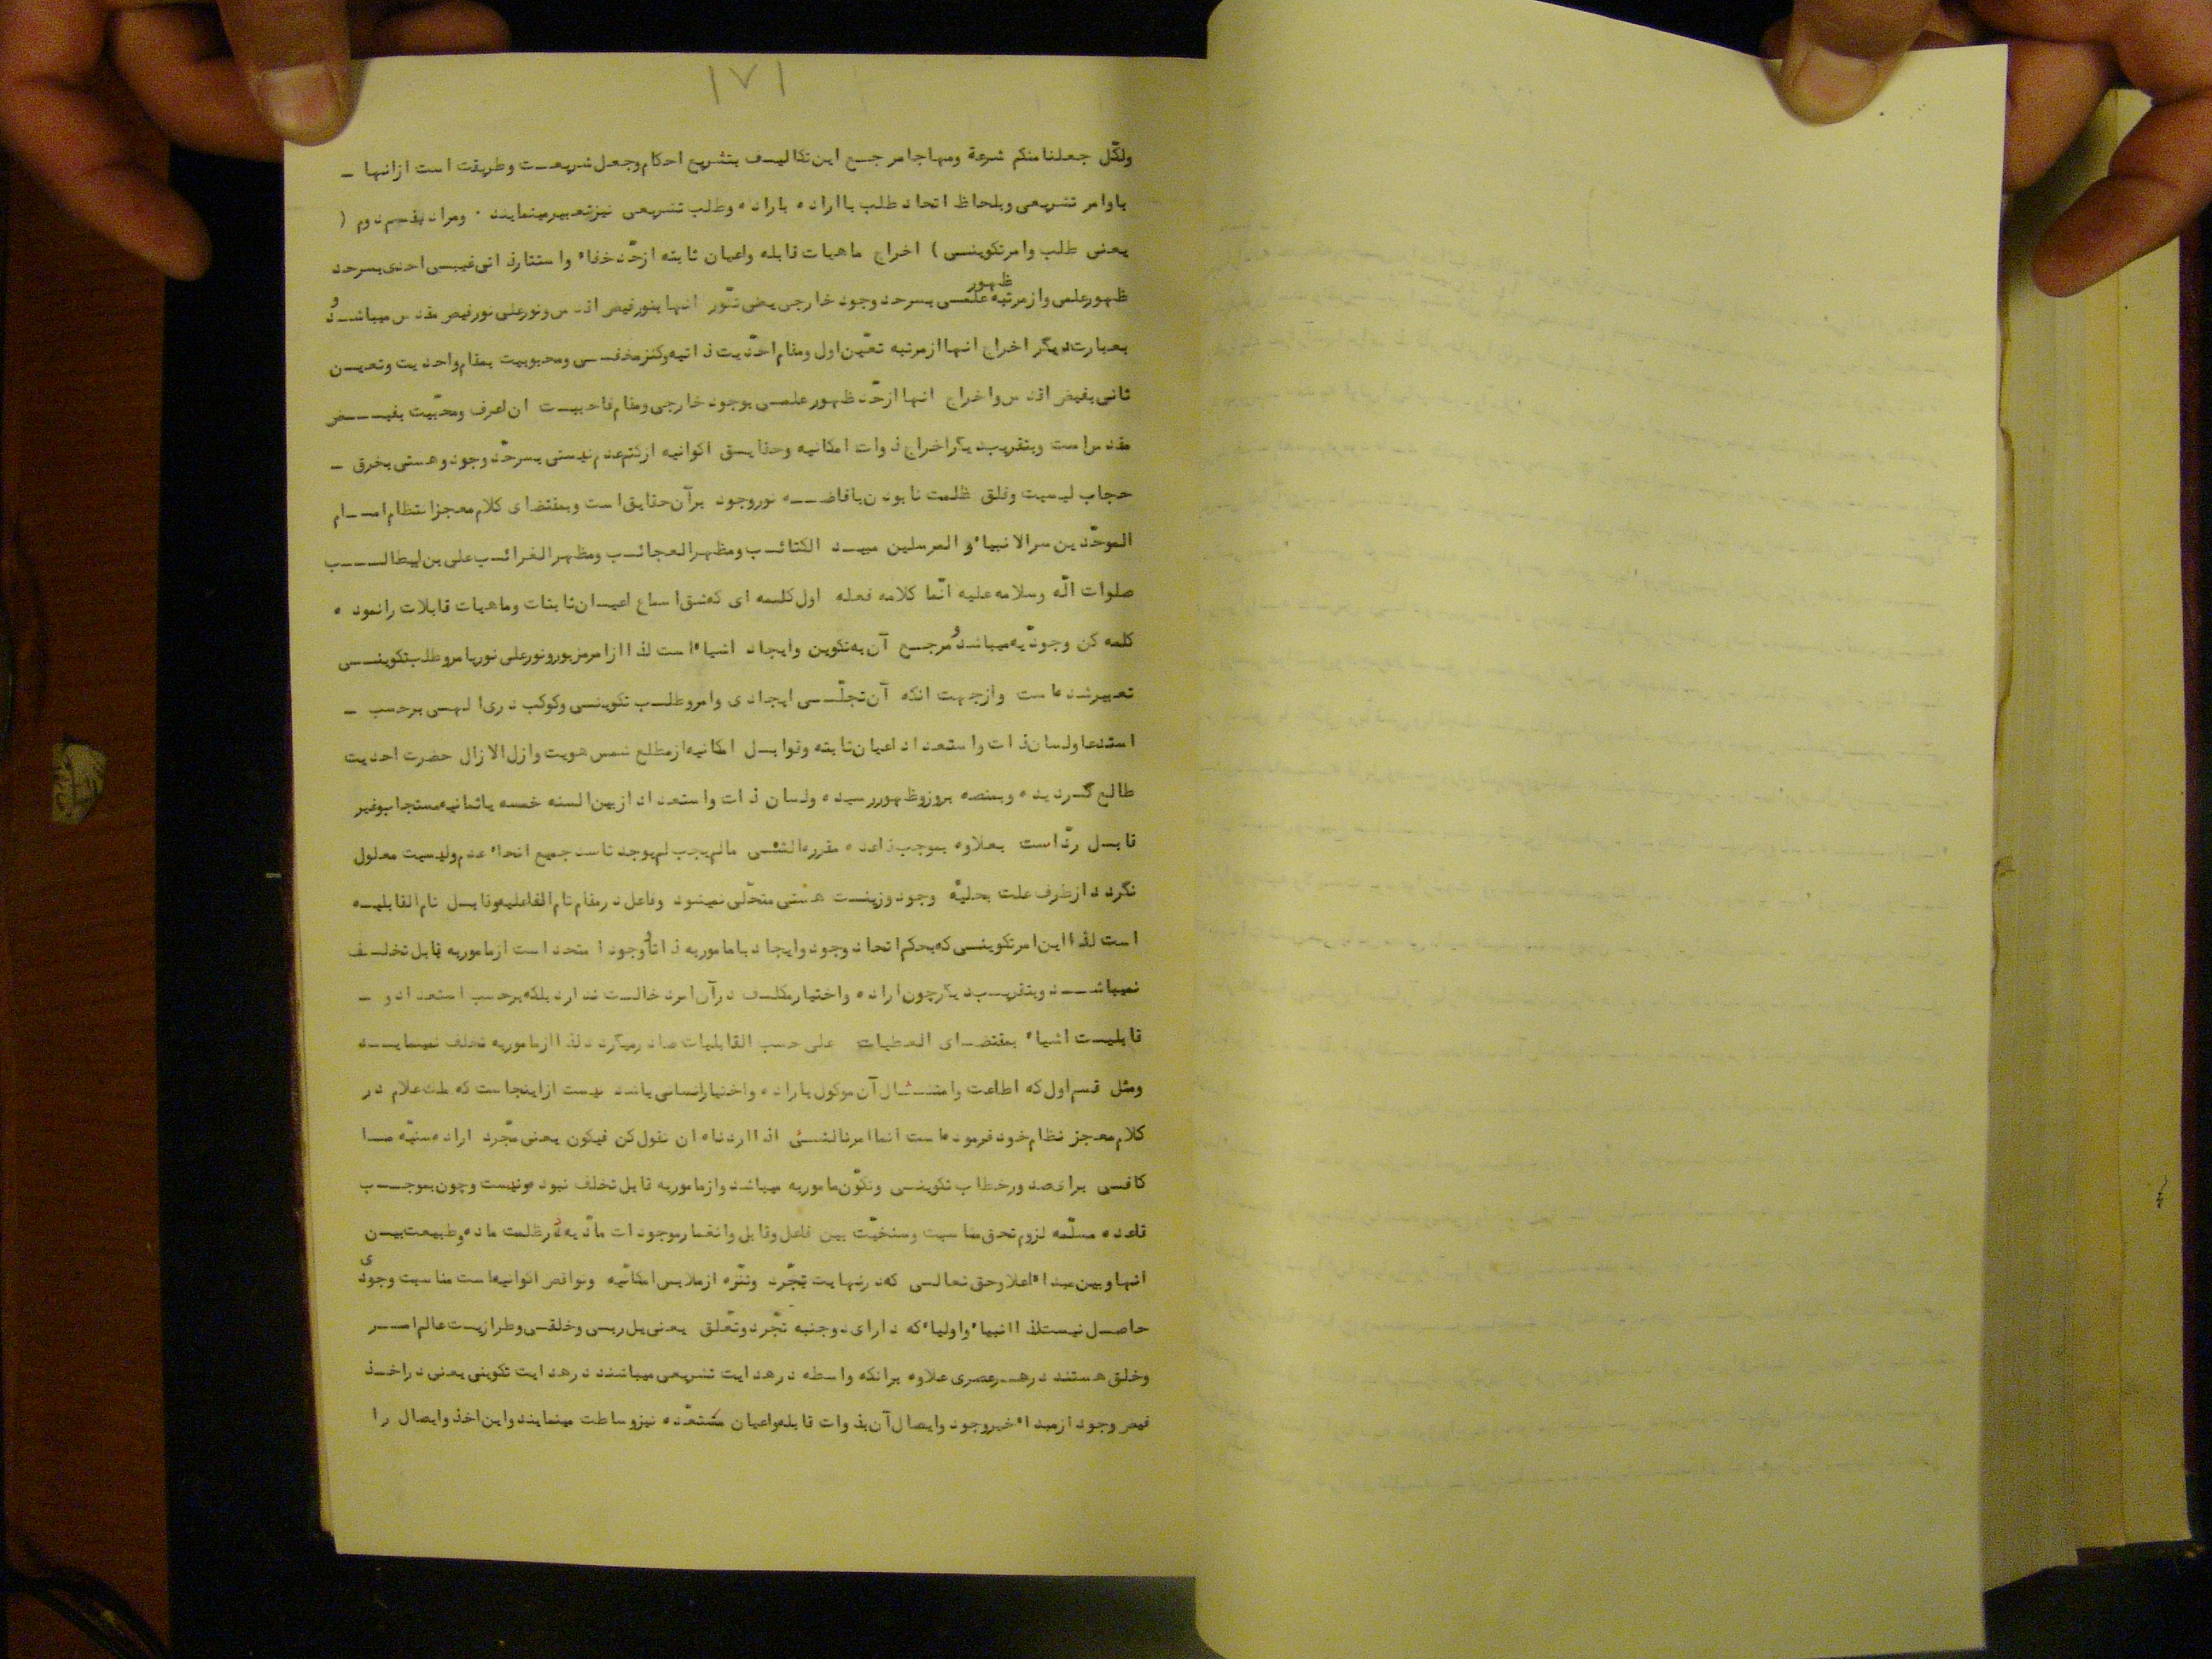 ۱۷۱
ولکّل جعلنا منکم شرعة ومنهاجا مرجع این تکالیف بتشریع احکام وجعل شریعت وطریقت است ازانها ـ
باوامر تشریعی وبلحاظ اتحاد طلب بااراده باراده وطلب تشریعی نیزتعبیرمینمایند ۰ ومراد بقسم دوم (
یعنی طلب وامرتکوینی ) اخراج ماهیات قابله واعیان ثابته ازحّد خفاء واستتارذاتی غیبی احدی بسرحد
ظهورعلمی وازمرتبه ظهور علمی بسرحد وجود خارجی یعنی تنّور انها بنورفیض اقدس ونورعلی نورفیض مقدس میباشد و
بعبارت دیگر اخراج انهاازمرتبه تعّین اول ومقام احّدیت ذاتیه وکنزمخفی ومحبوبیت بمقام واحدیت وتعین
ثانی بفیض اقدس واخراج انها ازحّد ظهورعلمی بوجود خارجی ومقام فاحببت ان اعرف ومحّبیت بفیض
مقدس است وبتقریب دیگراخراج ذوات امکانیه وحقایق اکوانیه ازکتم عدم نیستی بسرحّد وجود وهستی بخرق ـ
حجاب لیسیت وفلق ظلمت نابودن بافاضه نوروجود برآن حقایق است وبمقتضای کلام معجزانتظام امام
الموحّدین سرالانبیاء و المرسلین مبید الکتائب ومظهرالعجائب ومظهرالغرائب علی بن ابیطالب
صلوات الّه وسلامه علیه انّما کلامه فعله اول کلمه ای که شق اسماع اعیان ثابتات وماهیات قابلات رانموده
کلمه کن وجودّیه میباشد و مرجع آن به تکوین وایجاد اشیاء است لذاازامرمزبورونورعلی نوربامروطلب تکوینی
تعبیرشده است وازجهت انکه آن تجلّی ایجادی وامروطلب تکوینی وکوکب دری الهی برحسب ـ
استدعاولسان ذات واستعداد اعیان ثابته وقوابل امکانیه ازمطلع شمس هویت وازل الازال حضرت احدیت
طالع گردیده وبمنصه بروزوظهوررسیده ولسان ذات واستعداد ازبین السنه خمسه یاثمانیه مستجاب وغیر
قابل رّداست بعلاوه بموجب قاعده مقرره الشئی مالم یجب لم یوجد تاسد جمیع انحاء عدم ولیسیت معلول
نگردد ازطرف علت بحلیّه وجود وزینت هستی متحّلی نمیشود وفاعل درمقام تام الفاعلیه وقابل تام القابلیه
است لذا این امرتکوینی که بحکم اتحاد وجود وایجاد بامامور به ذاتا و وجودا متحد است ازماموربه قابل تخلف
نمیباشد وبتقریب دیگرچون اراده واختیارمکلف درآن امرد خالت ندارد بلکه برحسب استعداد و ـ
قابلیت اشیاء بمقتضای العطیات علی حسب القابلیات صادرمیگرد دلذا ازماموربه تخلف نمینماید
ومثل قسم اول که اطاعت وامتثال آن موکول باراده واختیارانسانی باشد نیست ازاینجاست که ملک علام در
کلام معجز نظام خود فرموده است انما امرنالشئی اذا اردناه ان نقول کن فیکون یعنی مجّرد اراده سنیّه ما
کافی برای صدورخطاب تکوینی وتکّون ماموربه میباشد وازماموربه قابل تخلف نبوده ونیست وچون بموجب
قاعده مسلّمه لزوم تحقق مناسبت وسنخیّت بین فاعل وقابل وانغمارموجودات مادّیه درظلمت ماده وطبیعت بین
انهاوبین مبداء اعلاوحق تعالی که درنهایت تجّرد وتنّزه ازملابس امکانّیه ونواقص اکوانیه است مناسبت وجودی
حاصل نیست لذا انبیاء واولیاء که دارای دوجنبه تجّرد وتعّلق یعنی یل ربی وخلقی وطرازیت عالم امر
وخلق هستند درهرعصری علاوه برانکه واسطه درهدایت تشریعی میباشند درهدایت تکوینی یعنی دراخذ
فیض وجود ازمبداء خیروجود وایصال آن بذوات قابله واعیان مستعّده نیزوساطت مینمایند واین اخذ وایصال را